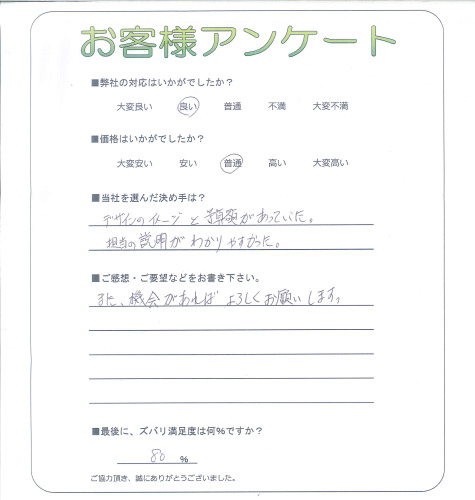 お客様アンケート
■弊社の対応はいかがでしたか？
大変良い 良い 普通 不満 大変不満
■価格はいかがでしたか？
大変安い 安い 普通 高い 大変高い
■当社を選んだ決め手は？
デザインのイメージと予算額があっていた。
担当の説明がわかりやすかった。
■ご感想・ご要望などをお書き下さい。
また、機会があればよろしくお願いします。
■最後に、ズバリ満足度は何％ですか？
80 ％
ご協力頂き、誠にありがとうございました。